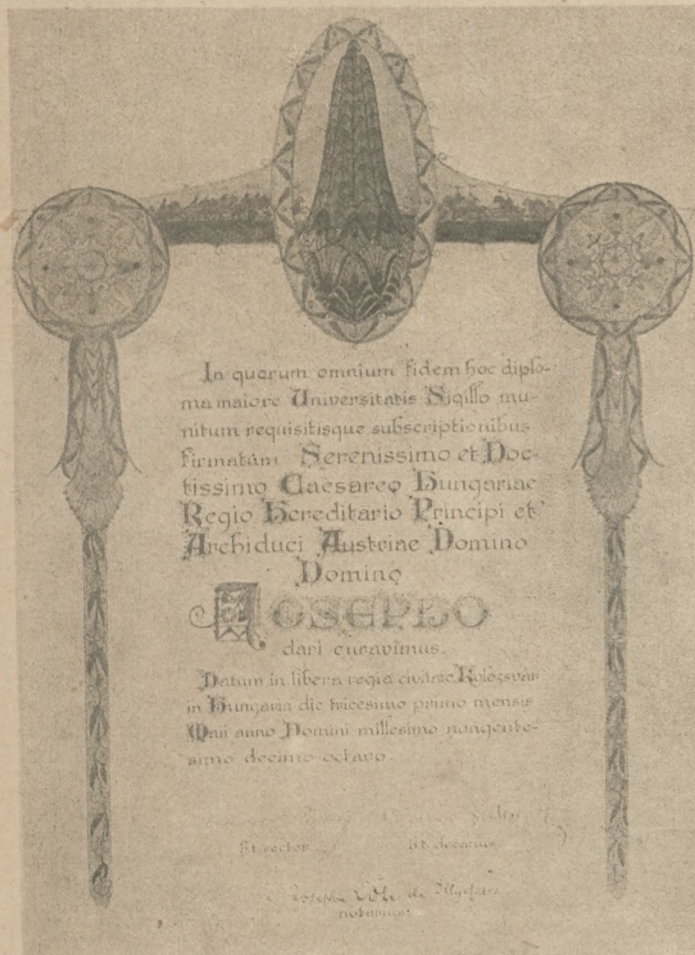 In quorum omnium fidem hoc diplo-
ma maiore Universitatis Sigillo mu-
nitum requisitisque subscriptionibus
firmatum Serenissimo et Doc-
tissimo Caesareo Hungariae
Regio Hereditario Principi et
Archiduci Austriae Domino
Domino
JOSEPHO
dari curavimus.
Datum in libera regia civitate Kolozsvár
in Hungaria die tricesimo primo mensis
Maii anno Domini millesimo nongente-
simo decimo octavo.
h.t. rector
h.t. decanus
Josephus de
notarius